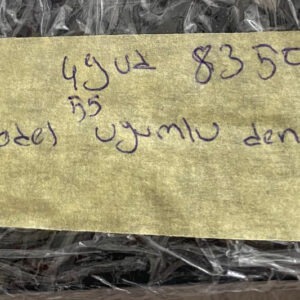 4gud 8350
55
odel uyumlu den